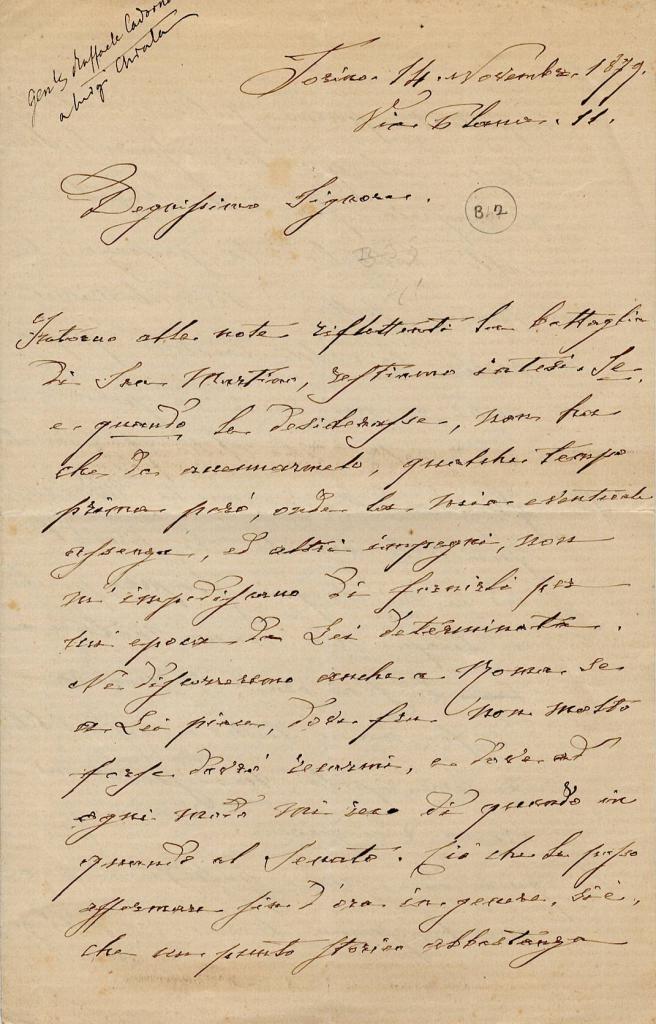 Gen. Raffaele Cadorna
a Luigi Chiala
Torino. 14. Novembre. 1879.
Via . 11.
Degnissimo Signore.
B 12
Intorno alle note riflettenti la battaglia
di San Martino, restiamo intesi. Se,
e quando le desiderasse, non ha
che da accennarmelo, qualche tempo
prima però, onde la mia eventuale
assenza, ed altri impegni, non
m'impediscano di fornirle per
un'epoca da Lei determinata.
Ne discorreremo anche a Roma se
a Lei piace, dove fra non molto
forse dovrò recarmi, e dove ad
ogni modo mi reco di quando in
quando al Senato. Ciò che le posso
affermare sin d'ora in genere, si è,
che un punto storico abbastanza